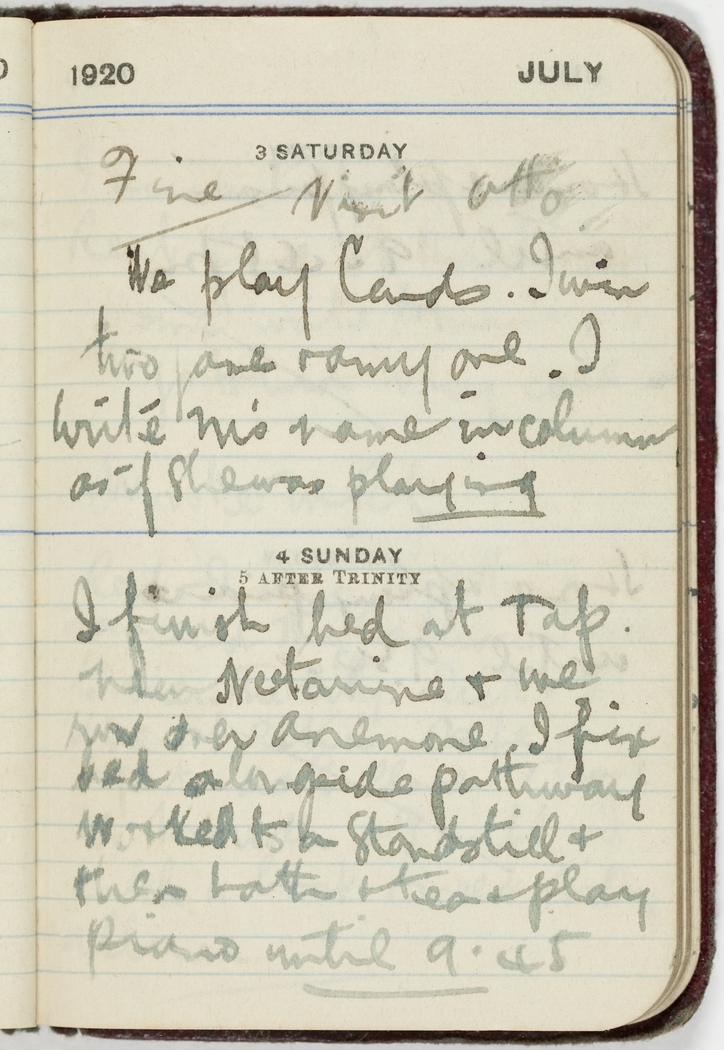 1920 JULY
3 SATURDAY
Fine Visit Otto
We play Cards. I win
two and one. I
write M's name in column
as if She was playing
4 SUNDAY
5 AFTER TRINITY
I finish bed at Tap.
Nectarine + we
row over Anemone. I fix
bed alongside pathway
Worked to a Standstill +
then bath + tea + play
Piano until 9.45